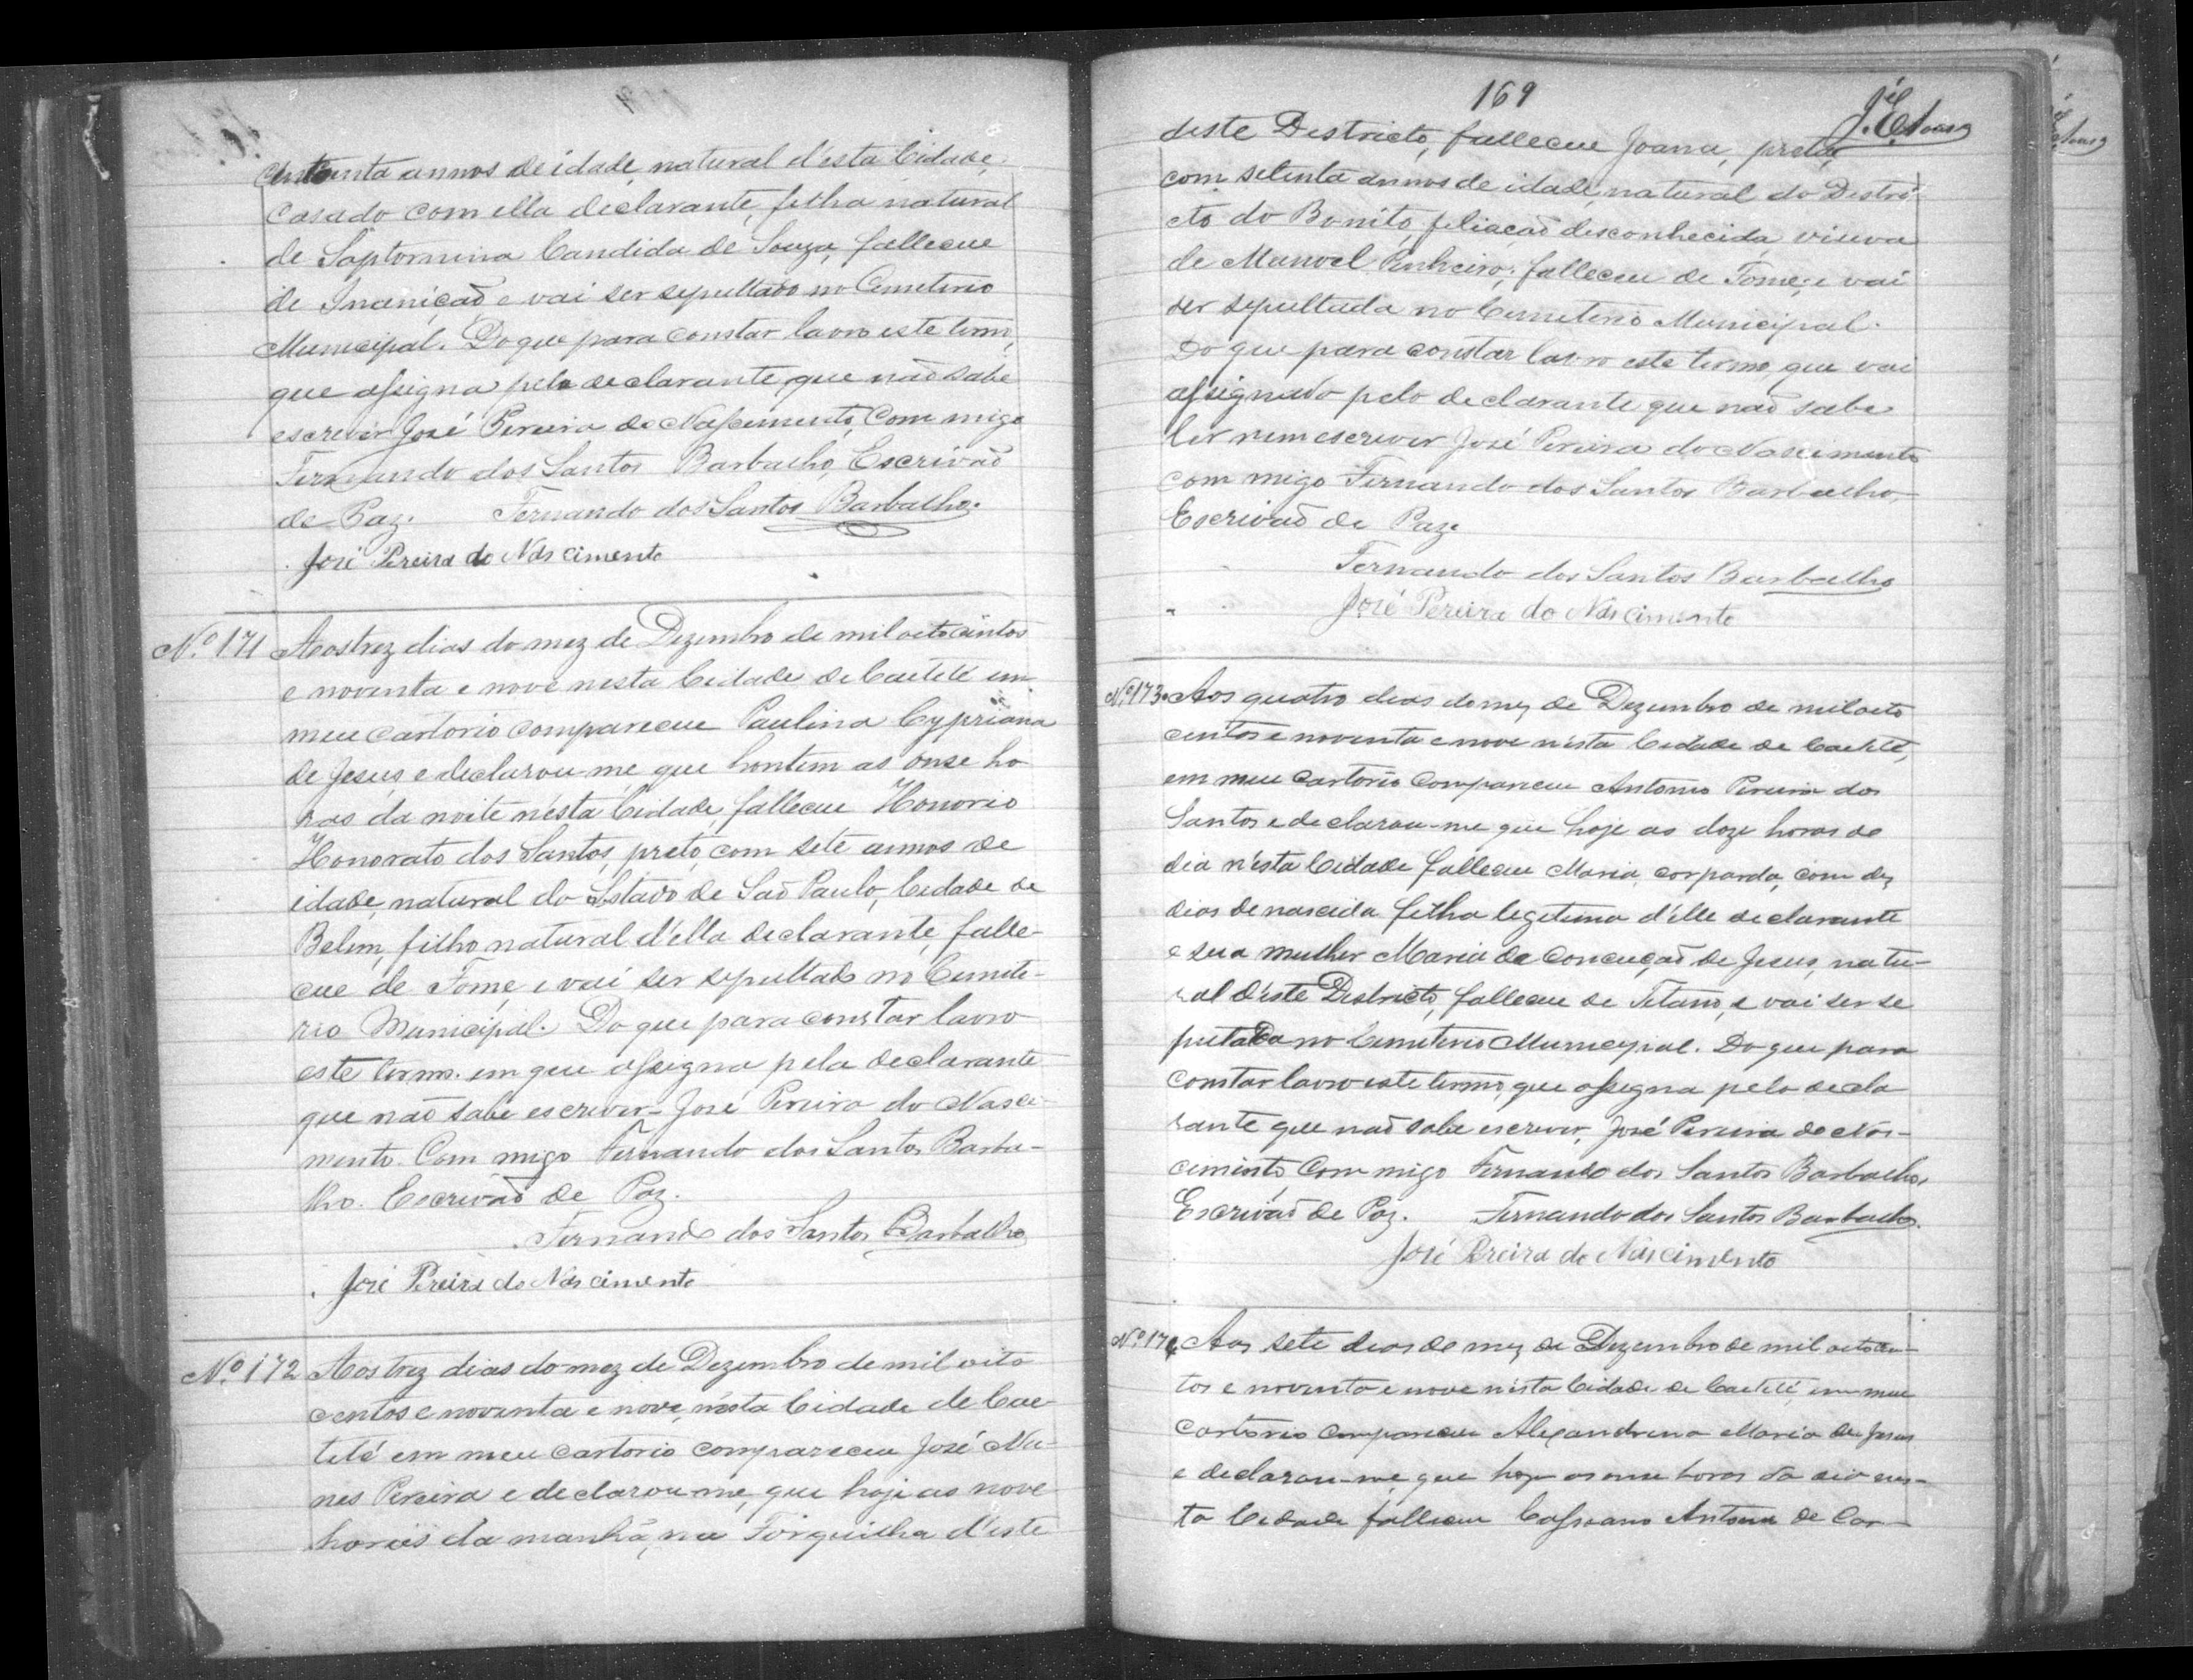 annos de idade, natural d'esta Cidade,
Casado com ella declarante, filho natural
de Saptornina Candida de Souza, falleceu
de Inanição e vai ser sepultado no Cemiterio
Municipal. Do que para constar lavro este termo,
que assigna pela declarante, que não sabe
escrever José Pereira do Nascimento, Com migo
Fernando dos Santos Barbalho, Escrivão
de Paz. Fernando dos Santos Barbalho.
José Pereira do Nascimento
Nº 171 Aos trez dias do mez de Dezembro de mil oitocentos
e noventa e nove nesta Cidade de Caeteté em
meu cartorio compareceu Paulina Cypriana
de Jesus, e declarou-me que hontem as onse ho
ras da noite n'esta Cidade, falleceu Honorio
Honorato dos Santos, preto, com sete annos de
idade, natural do Estado de São Paulo, Cidade de
Belem, filho natural d'ella declarante, falle-
ceu de Fome, e vai ser sepultado no Cemite-
rio Municipal. Do que para constar lavro
este termo. em que assigna pela declarante
que não sabe escrever - José Pereira do Nasci-
mento. Com migo Fernando dos Santos Barba-
lho. Escrivão de Paz.
Fernando dos Santos Barbalho
José Pereira do Nascimento
Nº 172 Aos trez dias do mez de Dezembro de mil oito
centos e noventa e nove, n'esta Cidade de Cae-
teté em meu cartorio compareceu José Nu-
nes Pereira e declarou-me, que hoje as nove
horas da manhã, na Forquilha d'este
169
deste Districto, falleceu Joana, preta,
com setenta annos de idade, natural do Distri-
cto do Bonito, filiação desconhecida, viuva
de Manoel Pinheiro, falleceu de Fome, e vai
ser sepultada no Cemiterio Municipal.
Do que para constar lavro este termo, que vai
assignado pelo declarante que não sabe
ler nem escrever José Pereira do Nascimento
com migo Fernando dos Santos Barbalho,
Escrivão de Paz.
Fernando dos Santos Barbalho
José Pereira do Nascimento
Nº 173. Aos quatro dias do mez de Dezembro de mil oito
centos e noventa e nove n'esta Cidade de Caeteté,
em meu cartorio compareceu Antonio Pereira dos
Santos e declarou-me que hoje as doze horas do
dia n'esta Cidade falleceu Maria, cor parda, com dez
dias de nascida filha legitima d'elle declarante
e sua mulher Maria da Conceição de Jesus, natu-
ral d'este Districto, falleceu de Tetano, e vai ser se
pultada no Cemiterio Municipal. Do que para
constar lavro este termo, que assigna pelo decla
rante que não sabe escrever, José Pereira do Nas-
cimento, Com migo Fernando dos Santos Barbalho,
Escrivão de Paz. Fernando dos Santos Barbalho.
José Pereira do Nascimento
Nº 174 Aos sete dias do mez de Dezembro de mil oitocen-
tos e noventa e nove nesta Cidade de Caeteté, em meu
Cartorio compareceu Alexandrina Maria de Jesus
e declarou-me, que hoje as onse horas do dia nes-
ta Cidade falleceu Cassiano Antonio de Car-